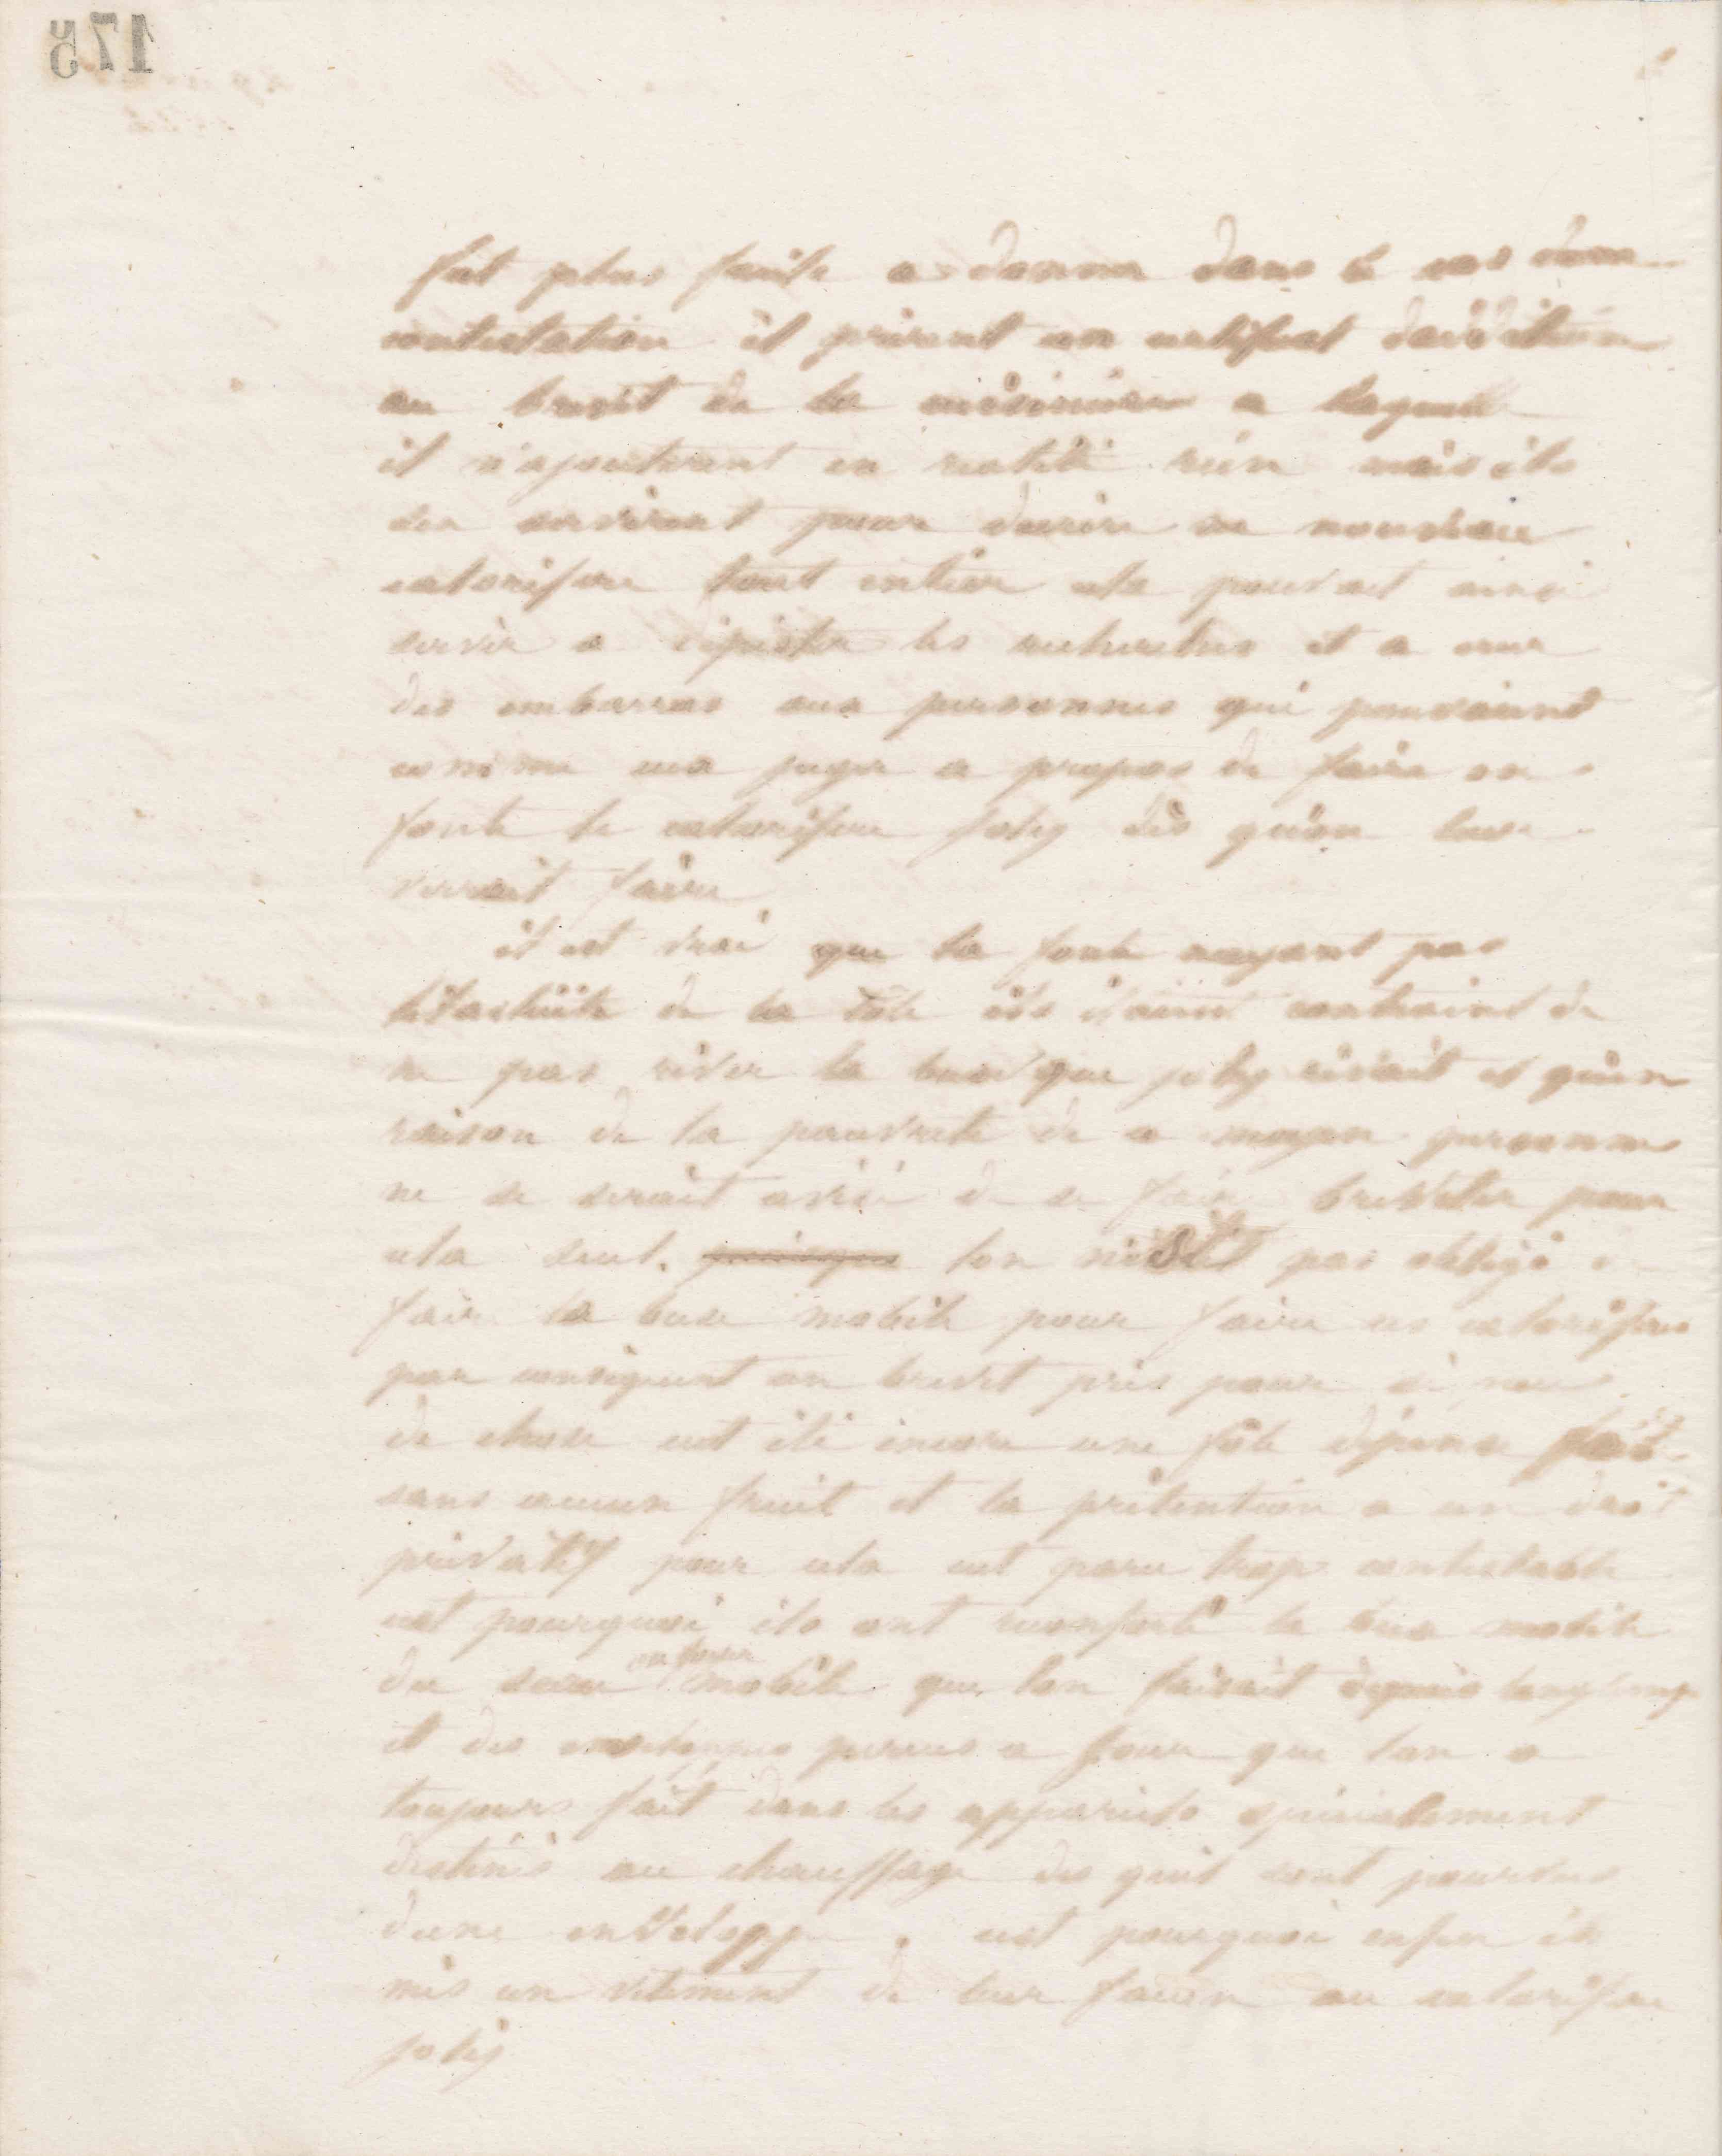 175
fut plus facile a donner dans le cas d'une
contestation il prirent un certificat d'addition
au brevet de la cuisinière a laquelle
il n'ajoutèrent en realité rien mais ils
sen servirent pour decrire un nouveau
calorifere tout entier cela pouvait ainsi
servir a dépister les recherches et a creer
des embarras aux personnes qui pouvaient
comme eux juger a propos de faire en
fonte le calorifere joly dès qu'on leur
verrait faire
il est vrai que la fonte nayant pas
lélasticité de la tôle ils étaient contraint de
ne pas river la buse que joly rivait et qu'en
raison de la pauvreté de ce moyen personne
ne se serait avisé de se faire breveter pour
cela seul. lon nétait pas obligé
faire la buse mobile pour faire ces calorifere
par conséquent un brevet pris pour si peu
de chose eut été encore une fole dépense
sans aucun fruit et la prétention a un droit
privatif pour cela eut paru trop contestable
cest pourquoi ils ont la buse mobile
du seau ou foyer mobile que lon faisait depuis longtemps
et des enveloppes percees a jour que lon a
toujours fait dans les appareils spécialement
destinés au chauffage des quil sont pourvus
dune enveloppe. cest pourquoi enfin ils
mis un vêtement de leur facon au calorifere
joly